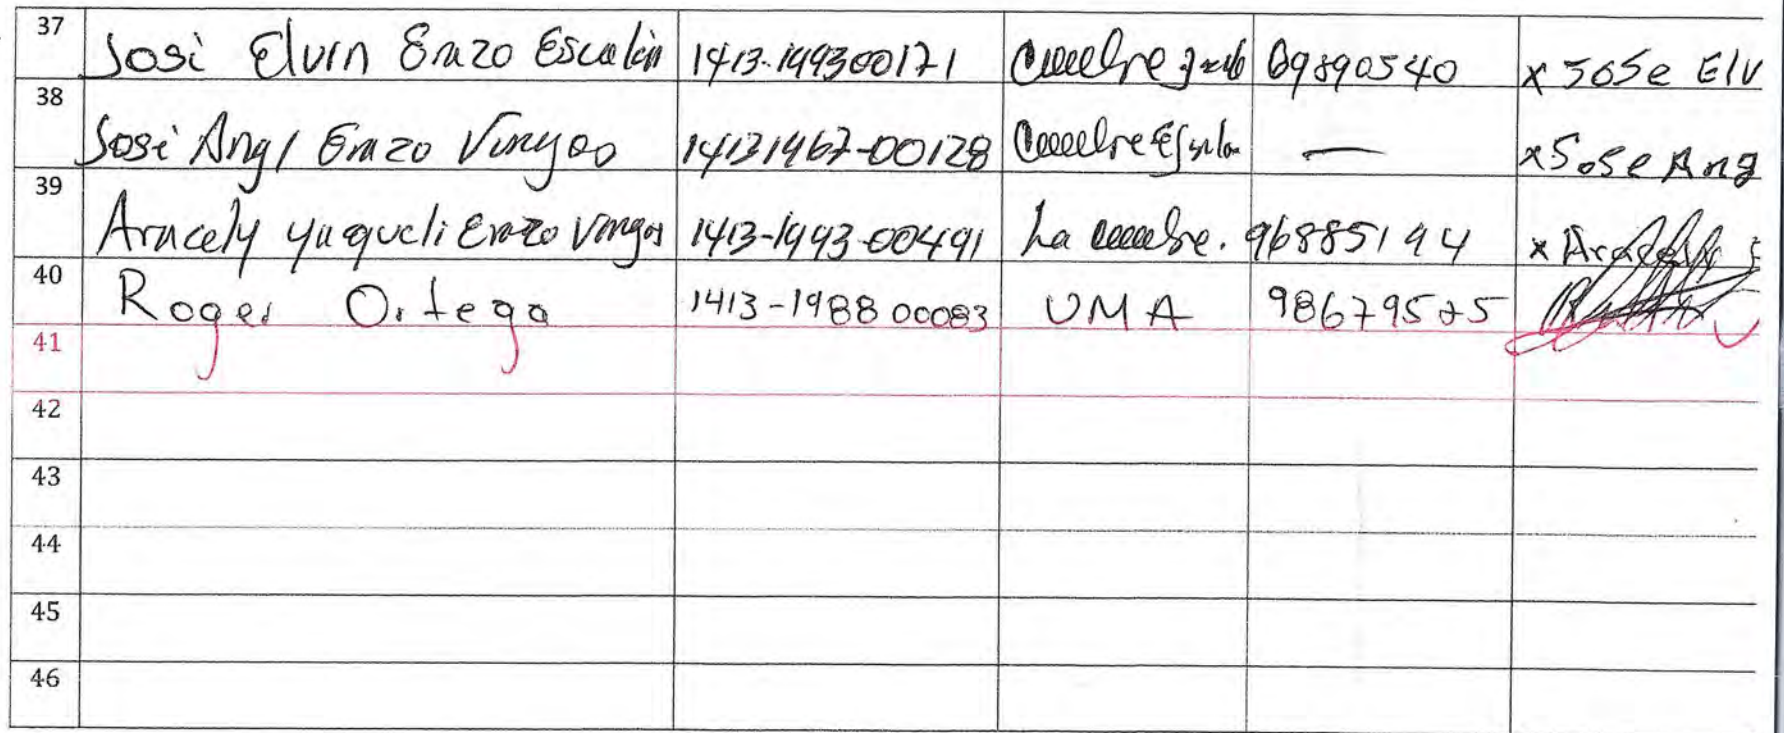 37 José Elvin Erazo Escalón 1413-199300171 Cumbre 89890540 x Jose Elv
38 José Angl Erazo Vargas 14131967-00128 Cumbre — x Jose Ang
39 Aracely yaqueli Erazo Vargas 1413-1993-00491 La cumbre. 96885194 x Aracely E
40 Roger Ortega 1413-1988 00083 UMA 98679525
41
42
43
44
45
46